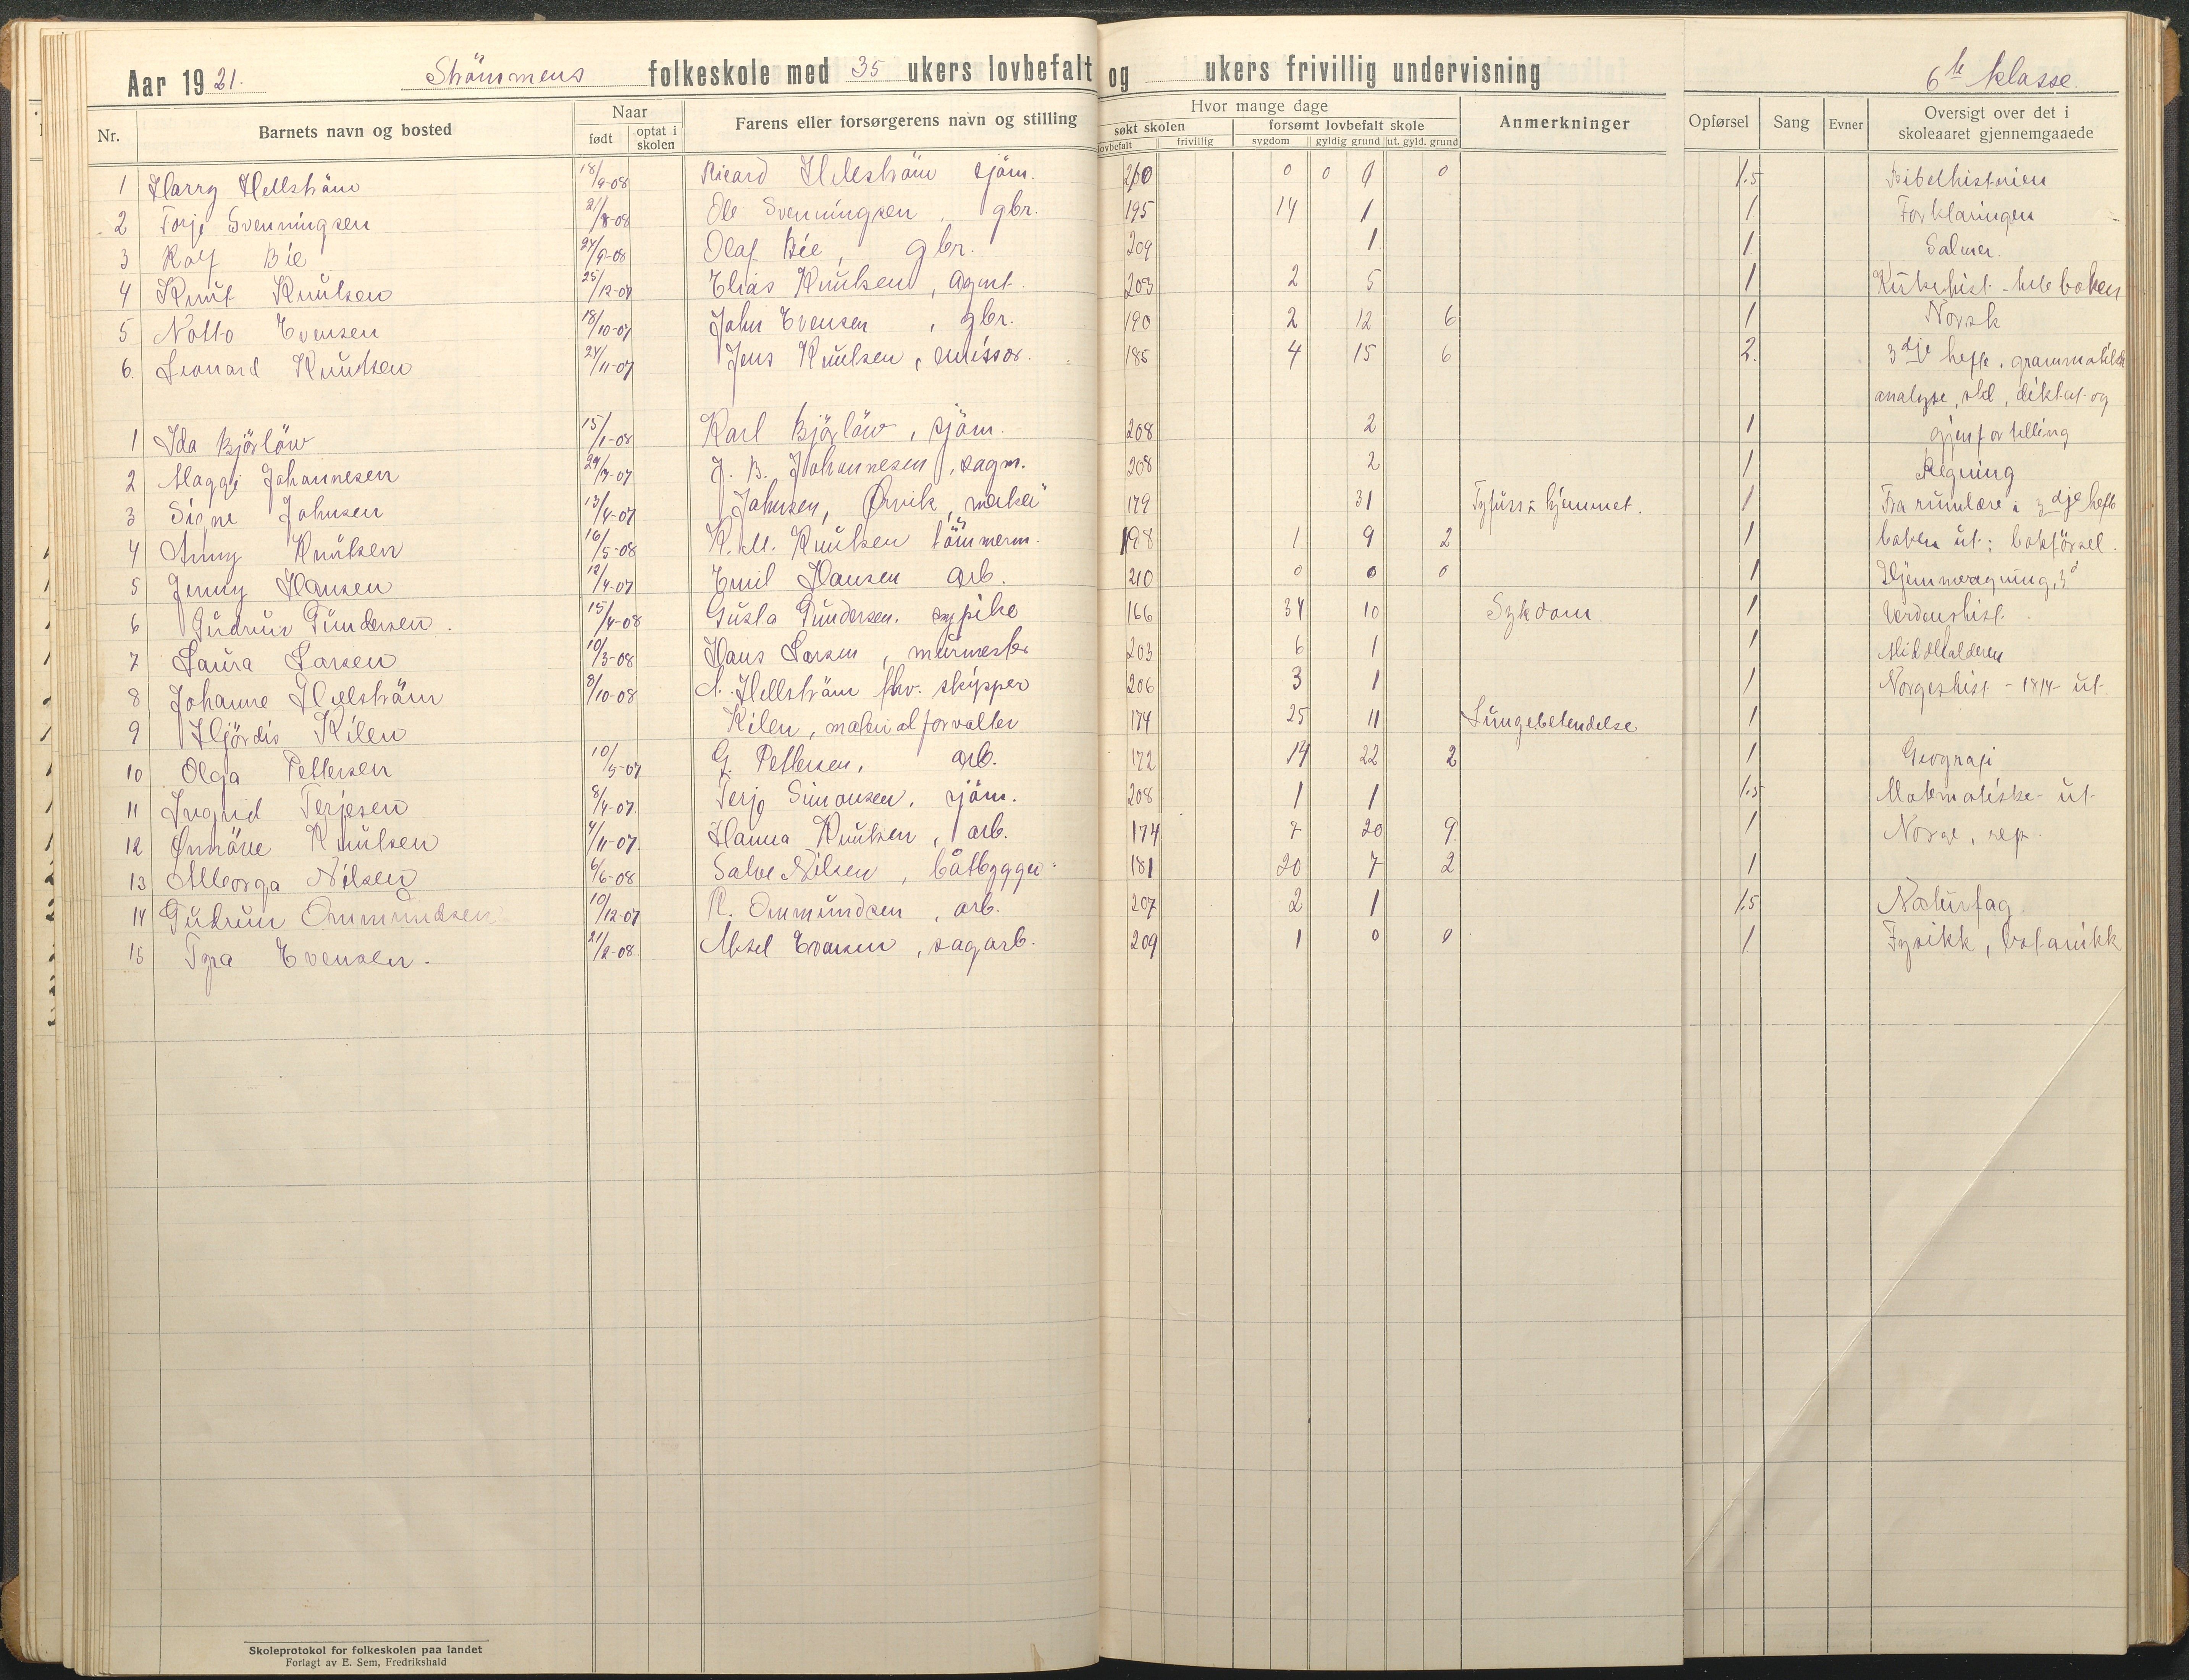 Aar 1921. Strömmens folkeskole med 35 ukers lovbefalt og ukers frivillig undervisning 6te klasse.
Nr. Barnets navn og bosted Naar født optat i skolen Farens eller forsørgerens navn og stilling Hvor mange dage søkt skolen lovbefalt frivillig forsømt lovbefalt skole sygdom gyldig grund ut. gyld. grund Anmerkninger Opførsel Sang Evner Oversigt over det i skoleaaret gjennemgaaede
1 Harry Hellström 18/9-08 Ricard Hellström sjöm. 210 0 0 0 0 1.5 Bibelhistorien
2 Torje Svenningsen 21/8-08 Ole Svenningsen, gbr. 195 14 1 1 Forklaringen
3 Rolf Bie 24/9-08 Olaf Bie, gbr. 209 1 1 Salmer.
4 Knut Knutsen 25/12-07 Elias Knutsen, agent. 203 2 5 1 Kirkehist. - hele boken
5 Notto Evensen 18/10-07 John Evensen, gbr. 190 2 12 6 1 Norsk
6. Leonard Knutsen 24/11-07 Jens Knutsen, 185 4 15 6 2. 3dje hefte, grammatikk
analyse, stil, diktat og
1 Ida Björlöw 15/1-08 Karl Björlöw, sjöm. 208 2 1 gjenfortelling
2 Maggi Johannesen J. B. Johannesen, sagm. 208 2 1 Regning
3 Signe Johnsen 13/4-07 Johnsen, Ørvik, 179 31 Tyfus i hjemmet. 1 Fra rumlære i 3dje hefte
4 Anny Knutsen 16/5-08 K. M. Knutsen tömmerm. 198 1 9 2 1 boken ut; bokförsel.
5 Jenny Hansen 12/4-07 Emil Hansen arb. 210 0 0 0 1 Hjemmeregning, 3d
6 Gudrun Gundersen. 15/4-08 Gusta Gundersen. sypike 166 34 10 Sykdom 1 Verdenshist.
7 Laura Larsen 10/3-08 Hans Larsen, murmester 203 6 1 1 Middelalderen
8 Johanne Hellström 8/10-08 A. Hellström fhv. skipper 206 3 1 1 Norgeshist - 1814 - ut.
9 Hjördis Kilen Kilen, materialforvalter 174 25 11 Lungebetendelse 1
10 Olga Pettersen 10/5-07 G. Pettersen, arb. 172 14 22 2 1 Geografi
11 Ingrid Terjesen 8/4-07. Terje Simonsen, sjöm. 208 1 1 1.5 Matematiske - ut.
12 Knutsen 4/11-07. Hanna Knutsen, arb. 174 7 20 9. 1 Norge, rep.
13 Nilsen 6/6-08 Salve Nilsen, båtbygger. 181 20 7 2 1
14 Gudrun Ommundsen 10/12-07 R. Ommundsen, arb. 207 2 1 1.5 Naturfag.
15 Tyra Evensen. 21/2-08 Aksel Evensen, sagarb. 209 1 0 0 1 Fysikk, botanikk
Skoleprotokol for folkeskolen paa landet
Forlagt av E. Sem, Fredrikshald